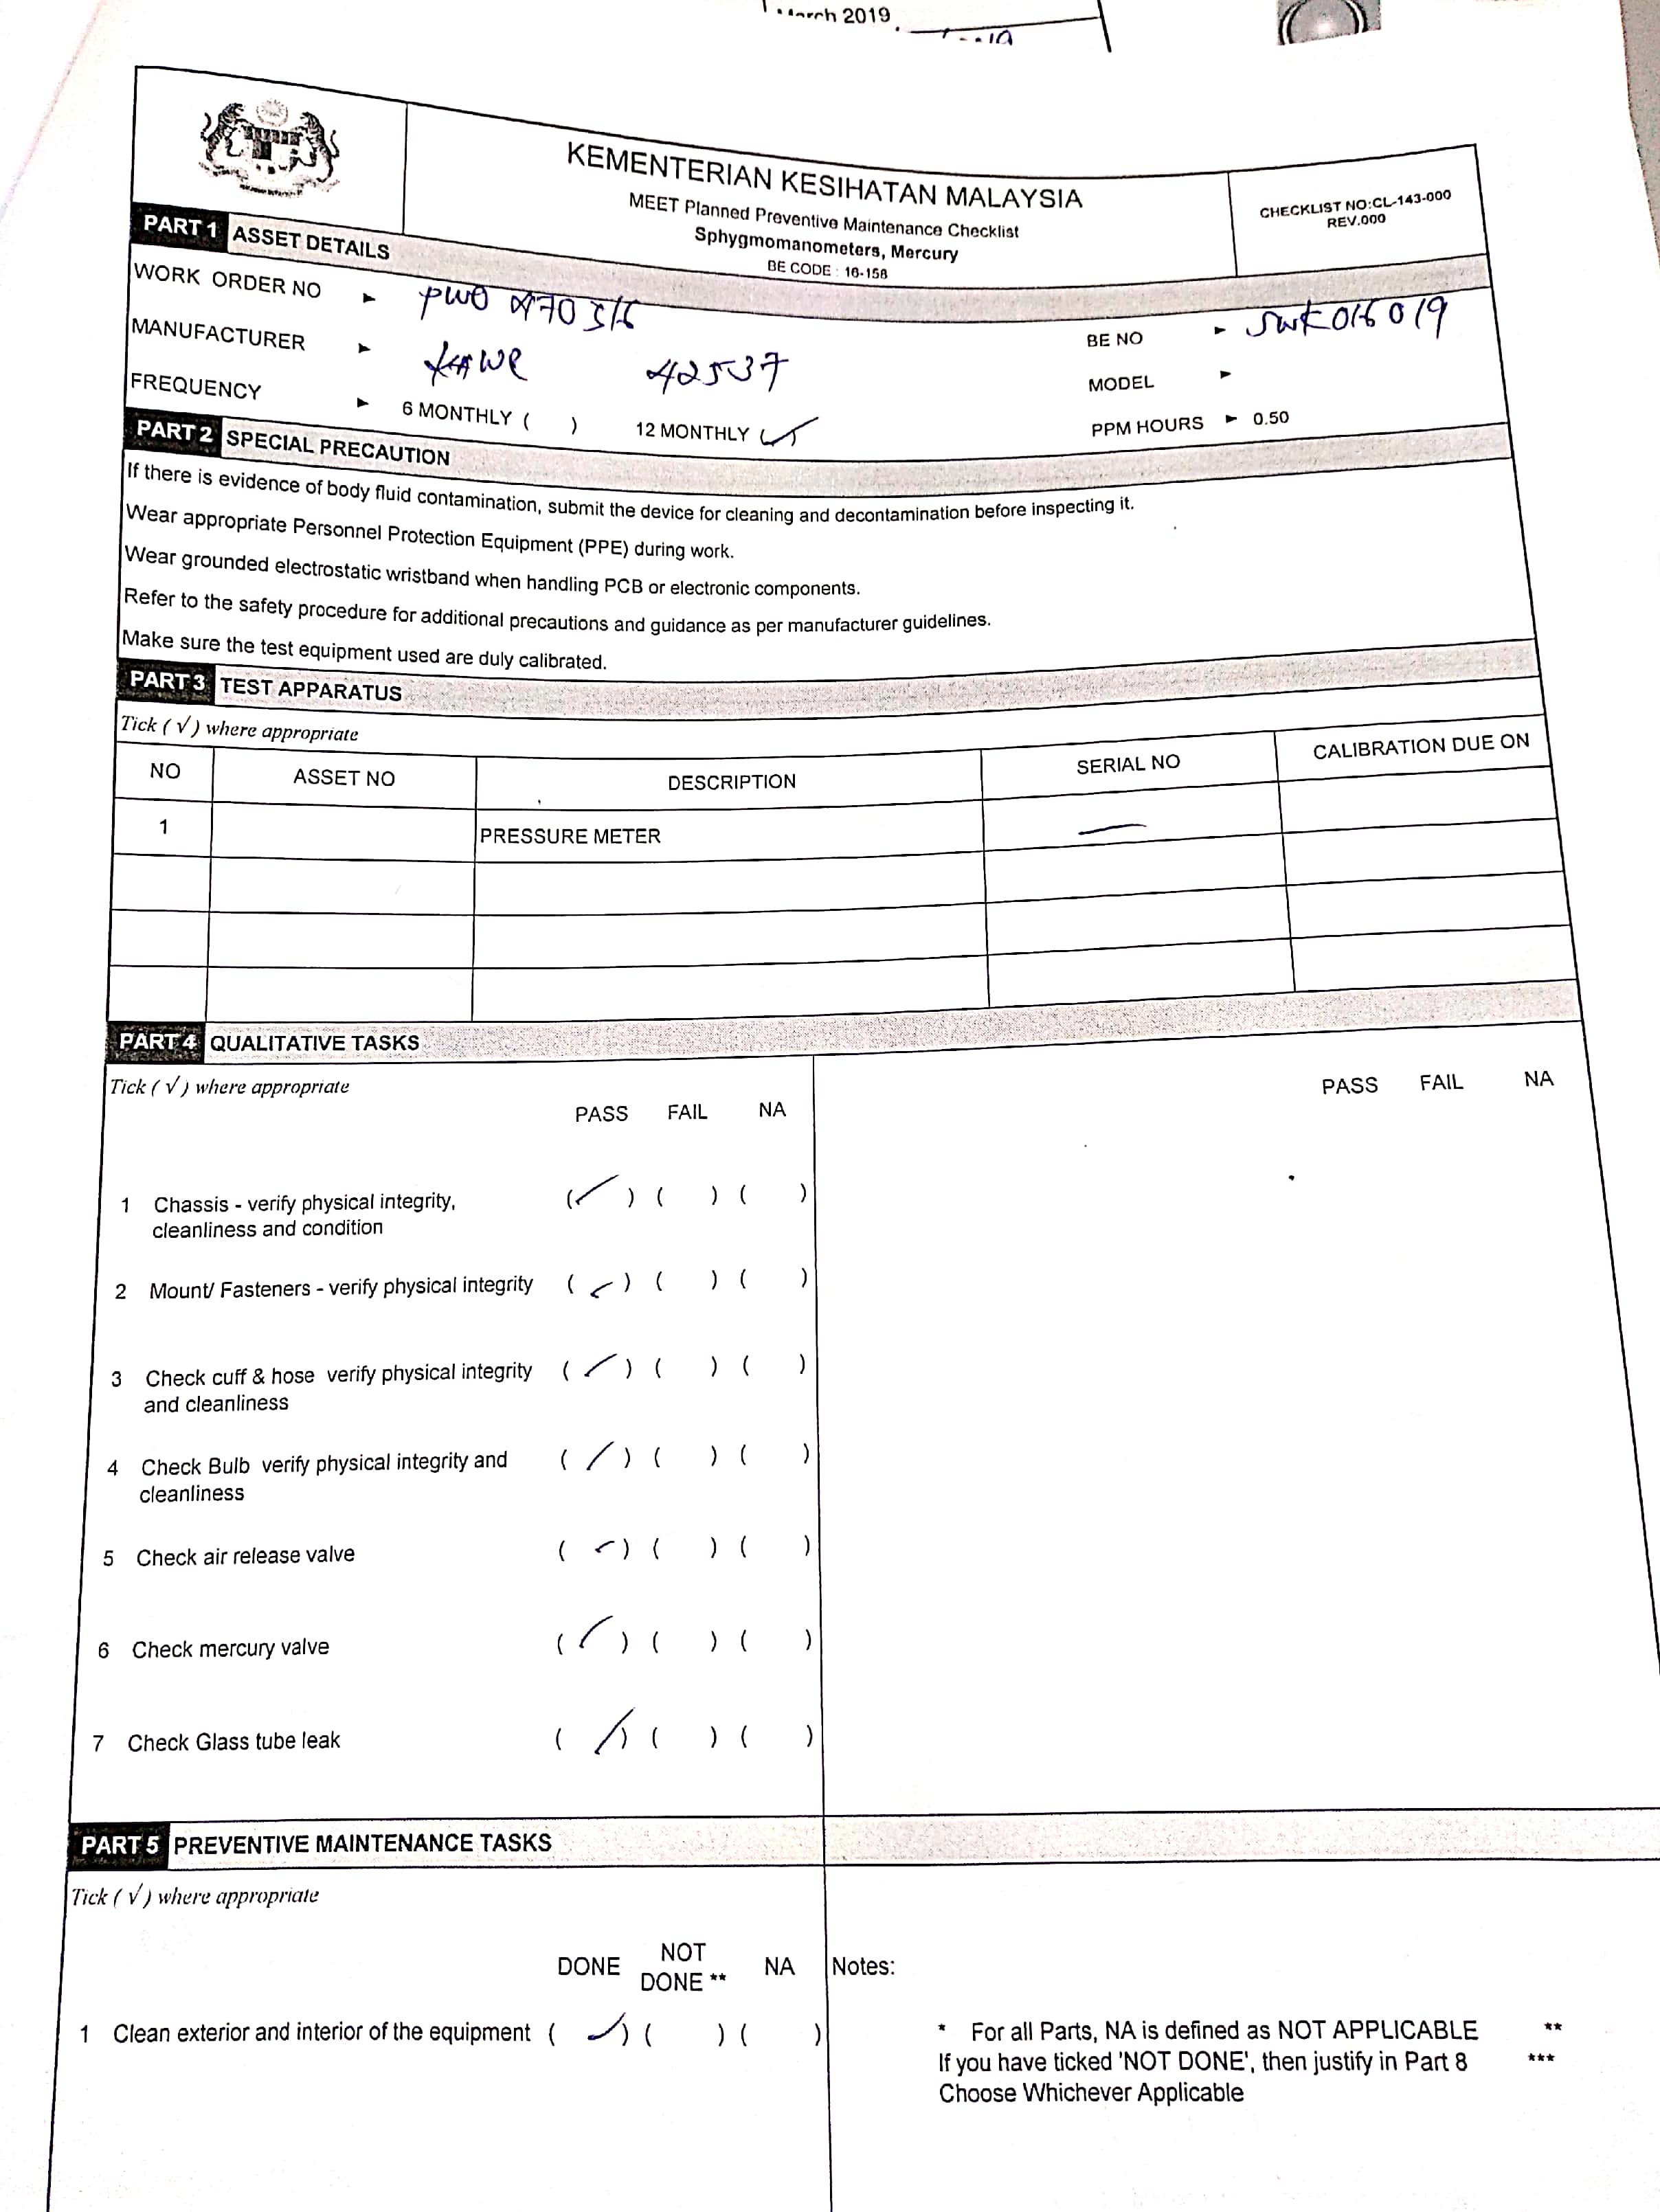 March 2019
KEMENTERIAN KESIHATAN MALAYSIA
MEET Planned Preventive Maintenance Checklist
Sphygmomanometers, Mercury
BE CODE : 16-158
CHECKLIST NO:CL-143-000
REV.000
PART 1 ASSET DETAILS
WORK ORDER NO ► PWO
BE NO ► SWK016019
MANUFACTURER ► KAWE 42537
MODEL ►
FREQUENCY ► 6 MONTHLY ( ) 12 MONTHLY (✓)
PPM HOURS ► 0.50
PART 2 SPECIAL PRECAUTION
If there is evidence of body fluid contamination, submit the device for cleaning and decontamination before inspecting it.
Wear appropriate Personnel Protection Equipment (PPE) during work.
Wear grounded electrostatic wristband when handling PCB or electronic components.
Refer to the safety procedure for additional precautions and guidance as per manufacturer guidelines.
Make sure the test equipment used are duly calibrated.
PART 3 TEST APPARATUS
Tick ( √ ) where appropriate
NO ASSET NO DESCRIPTION SERIAL NO CALIBRATION DUE ON
1 PRESSURE METER —
PART 4 QUALITATIVE TASKS
Tick ( √ ) where appropriate
PASS FAIL NA PASS FAIL NA
1 Chassis - verify physical integrity, (✓) ( ) ( )
cleanliness and condition
2 Mount/ Fasteners - verify physical integrity (✓) ( ) ( )
3 Check cuff & hose verify physical integrity (✓) ( ) ( )
and cleanliness
4 Check Bulb verify physical integrity and (✓) ( ) ( )
cleanliness
5 Check air release valve (✓) ( ) ( )
6 Check mercury valve (✓) ( ) ( )
7 Check Glass tube leak (✓) ( ) ( )
PART 5 PREVENTIVE MAINTENANCE TASKS
Tick ( √ ) where appropriate
DONE NOT DONE ** NA
1 Clean exterior and interior of the equipment (✓) ( ) ( )
Notes:
* For all Parts, NA is defined as NOT APPLICABLE **
If you have ticked 'NOT DONE', then justify in Part 8 ***
Choose Whichever Applicable